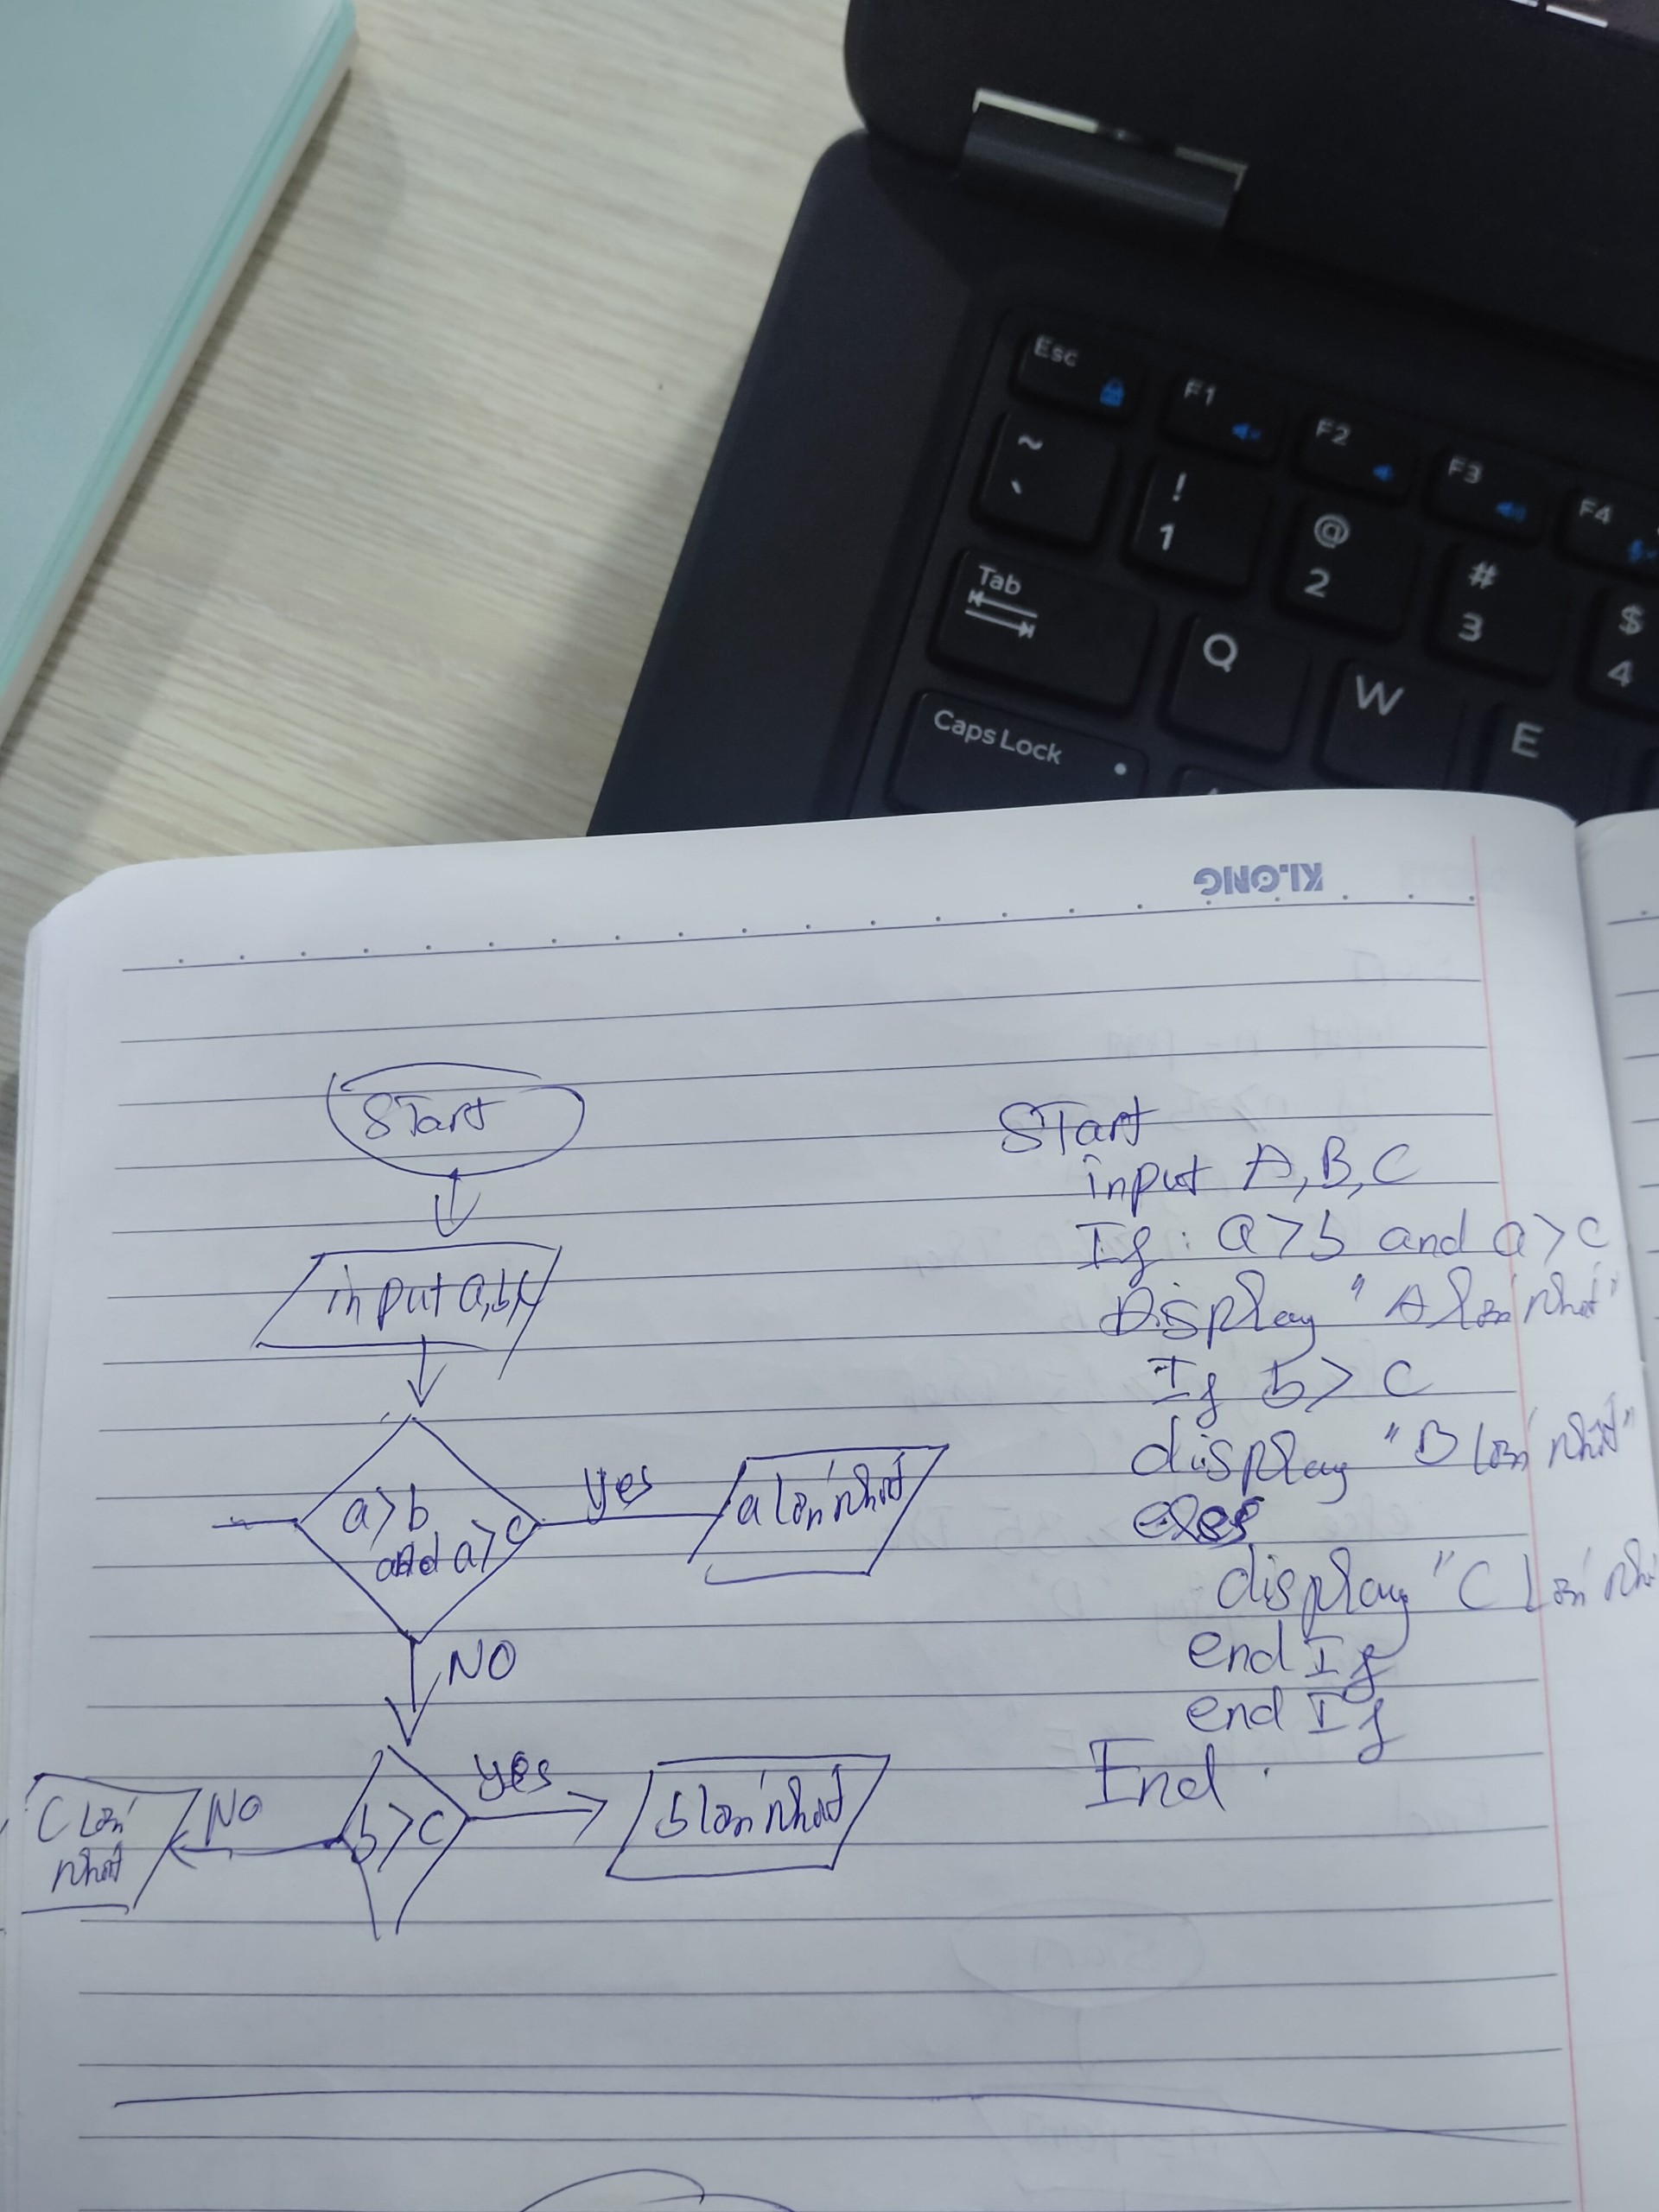 Esc
F1
F2
F3
F4
~
`
!
1
@
2
#
3
$
4
Tab
Q
W
E
Caps Lock
KLONG
START
input a,b,c
a>b
and a>c
yes
a lớn nhất
NO
b>c
yes
b lớn nhất
NO
C lớn
nhất
START
input A, B, C
If : a>b and a>c
Display "A lớn nhất"
If b> C
display "B lớn nhất"
display "C Lớn
end If
end If
End .